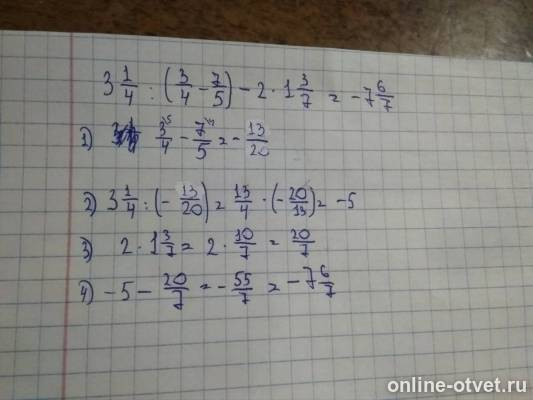 3 1/4 : (3/4 - 7/5) - 2 · 1 3/7 = -7 6/7
1) 3/4 - 7/5 = - 13/20
2) 3 1/4 : (- 13/20) = 13/4 · (- 20/13) = -5
3) 2 · 1 3/7 = 2 · 10/7 = 20/7
4) -5 - 20/7 = - 55/7 = -7 6/7
online-otvet.ru